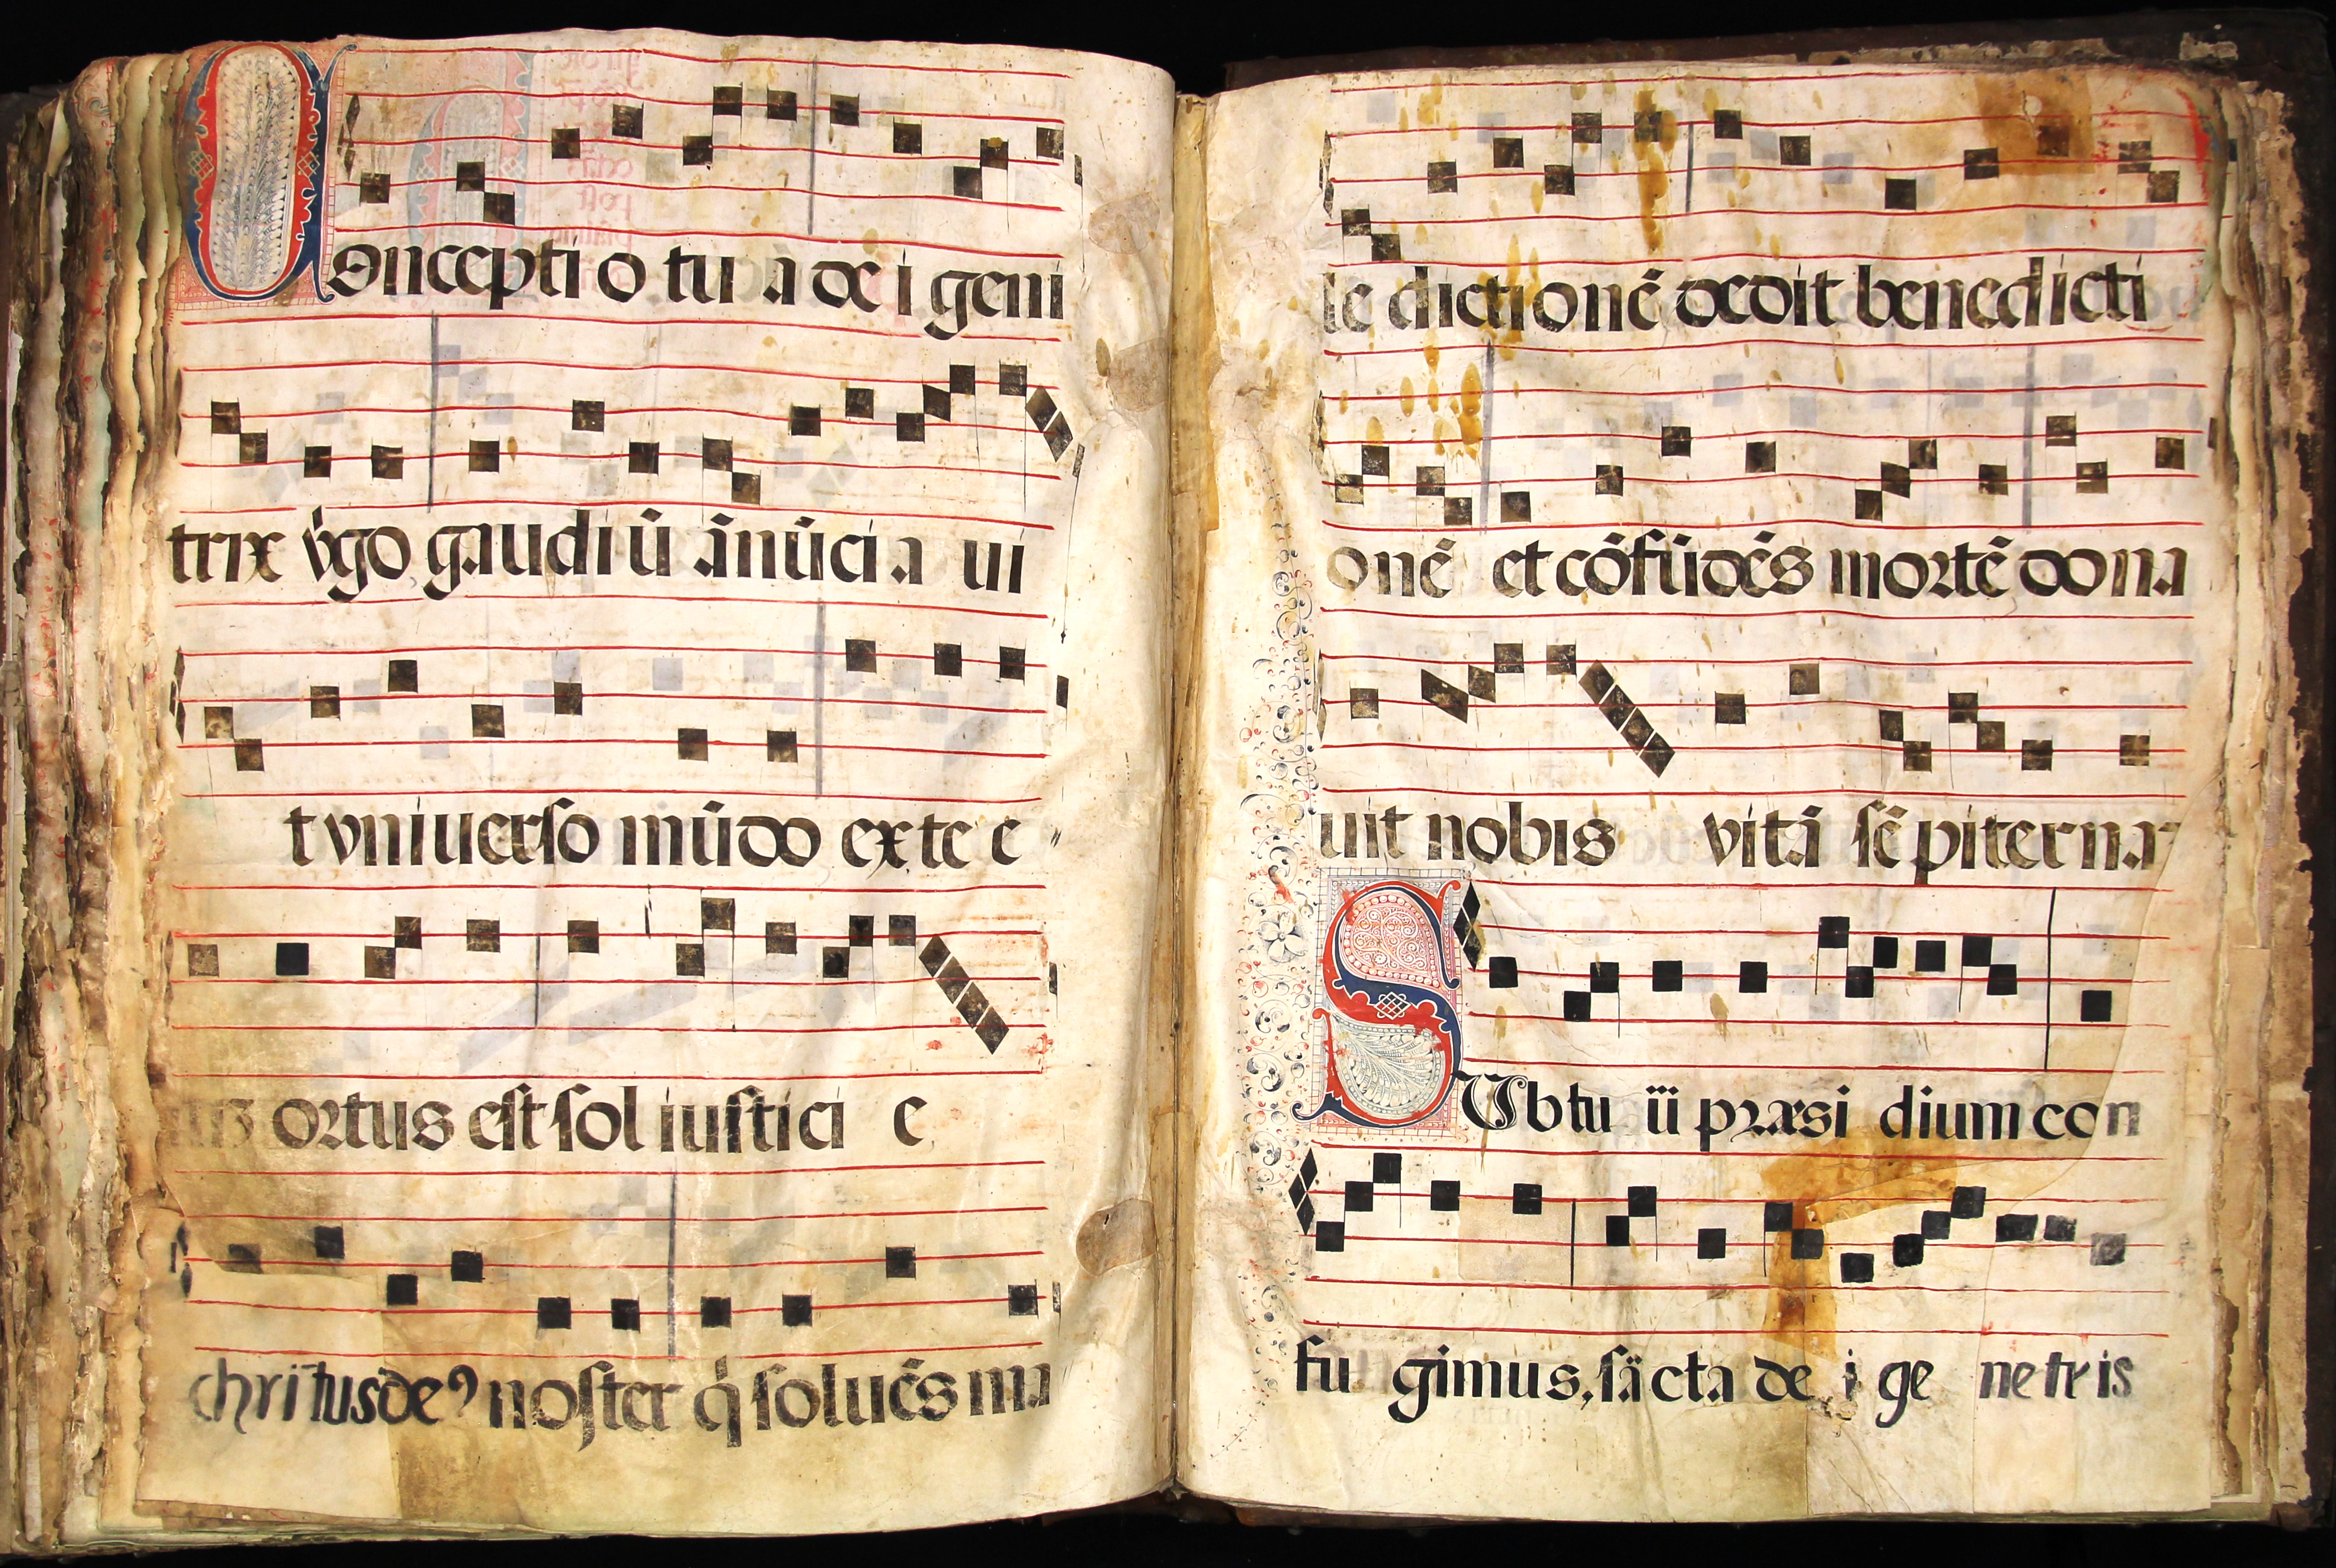 Conceptio tua dei geni
trix v̓go gaudiū ānūcia ui
t vniuerso mūdo ex te e
ortus est sol iustici e
christus de⁹ noster q̓ soluēs ma
le dictionē dedit benedicti
onē et cōfūdēs mortē dona
uit nobis vitā sēpiterna
SUb tuū præsidium con
fu gimus, sācta dei ge netris